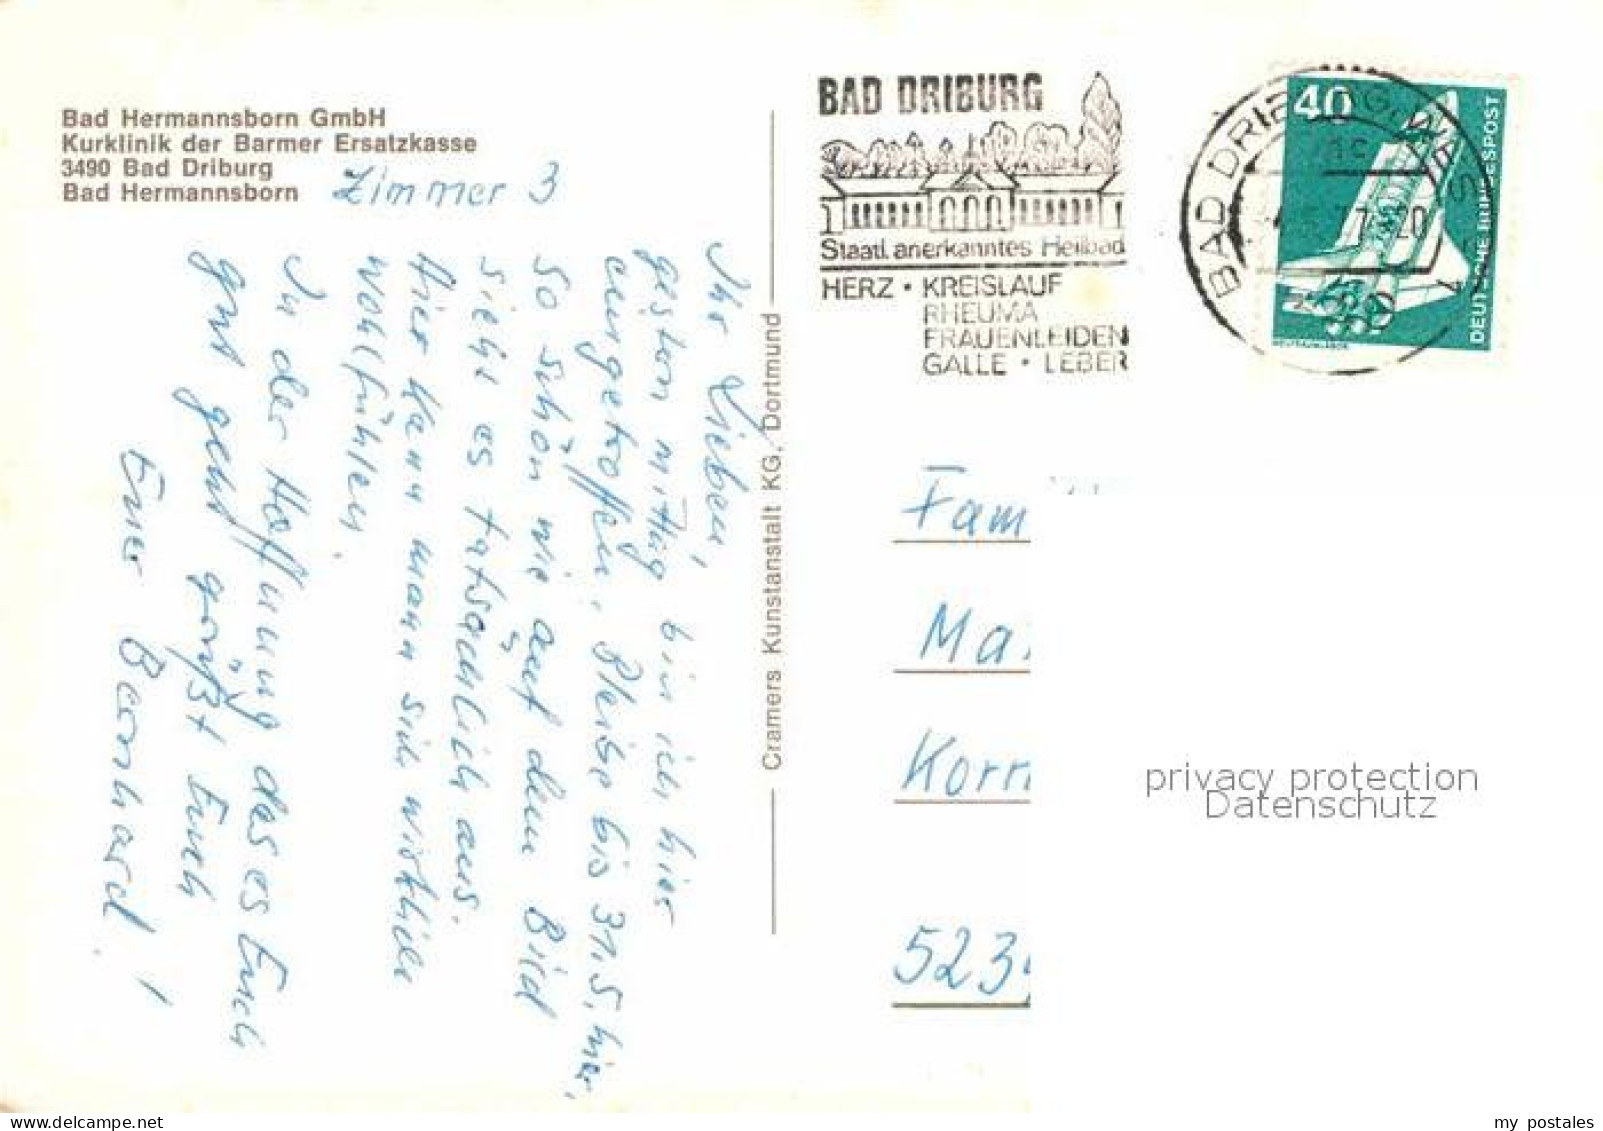 Bad Hermannsborn GmbH
Kurklinik der Barmer Ersatzkasse
3490 Bad Driburg
Bad Hermannsborn
Zimmer 3
Ihr Lieben,
gestern mittag bin ich hier
eingetroffen. Bleibe bis 31.5. hier.
So schön wie auf dem Bild
sieht es tatsächlich aus.
Hier kann mann sich wirklich
wohlfühlen.
In der Hoffnung das es Euch
gut geht grüßt Euch
Euer Bernhard!
Cramers Kunstanstalt KG, Dortmund
BAD DRIBURG
Staatl. anerkanntes Heilbad
HERZ • KREISLAUF
RHEUMA
FRAUENLEIDEN
GALLE • LEBER
BAD DRIBURG
40
DEUTSCHE BUNDESPOST
Fam
Ma
Korr
523
privacy protection
Datenschutz
my postales